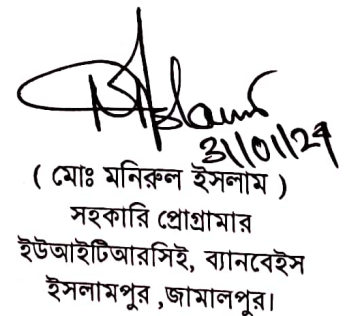 31/01/24
( মোঃ মনিরুল ইসলাম )
সহকারি প্রোগ্রামার
ইউআইটিআরসিই, ব্যানবেইস
ইসলামপুর ,জামালপুর।